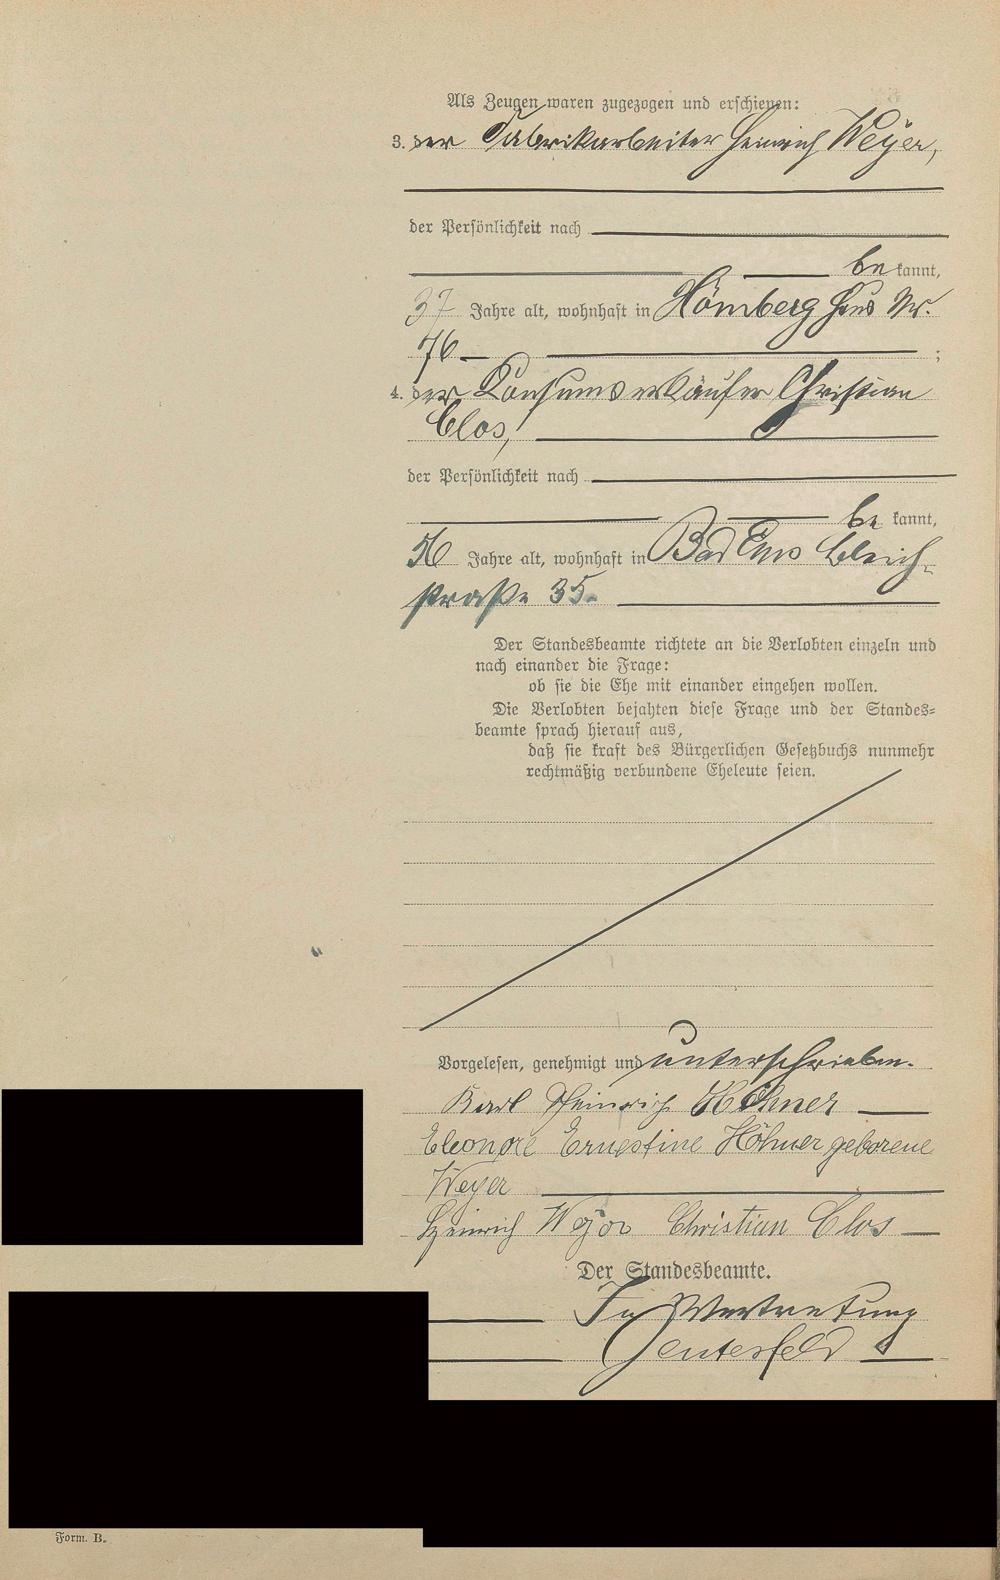 Als Zeugen waren zugezogen und erschienen:
3. der Fabrikarbeiter Heinrich Weyer,
der Persönlichkeit nach
be kannt,
37 Jahre alt, wohnhaft in Hömberg Haus Nr.
76 ;
4. der Konsumverkäufer Christian
Clos,
der Persönlichkeit nach
be kannt,
56 Jahre alt, wohnhaft in Bad Ems Bleich-
straße 35.
Der Standesbeamte richtete an die Verlobten einzeln und
nach einander die Frage:
ob sie die Ehe mit einander eingehen wollen.
Die Verlobten bejahten diese Frage und der Standes-
beamte sprach hierauf aus,
daß sie kraft des Bürgerlichen Gesetzbuchs nunmehr
rechtmäßig verbundene Eheleute seien.
Vorgelesen, genehmigt und unterschrieben.
Karl Heinrich Höhner
Eleonore Ernestine Höhner geborene
Weyer
Heinrich Weyer Christian Clos
Der Standesbeamte.
In Vertretung
Form. B.